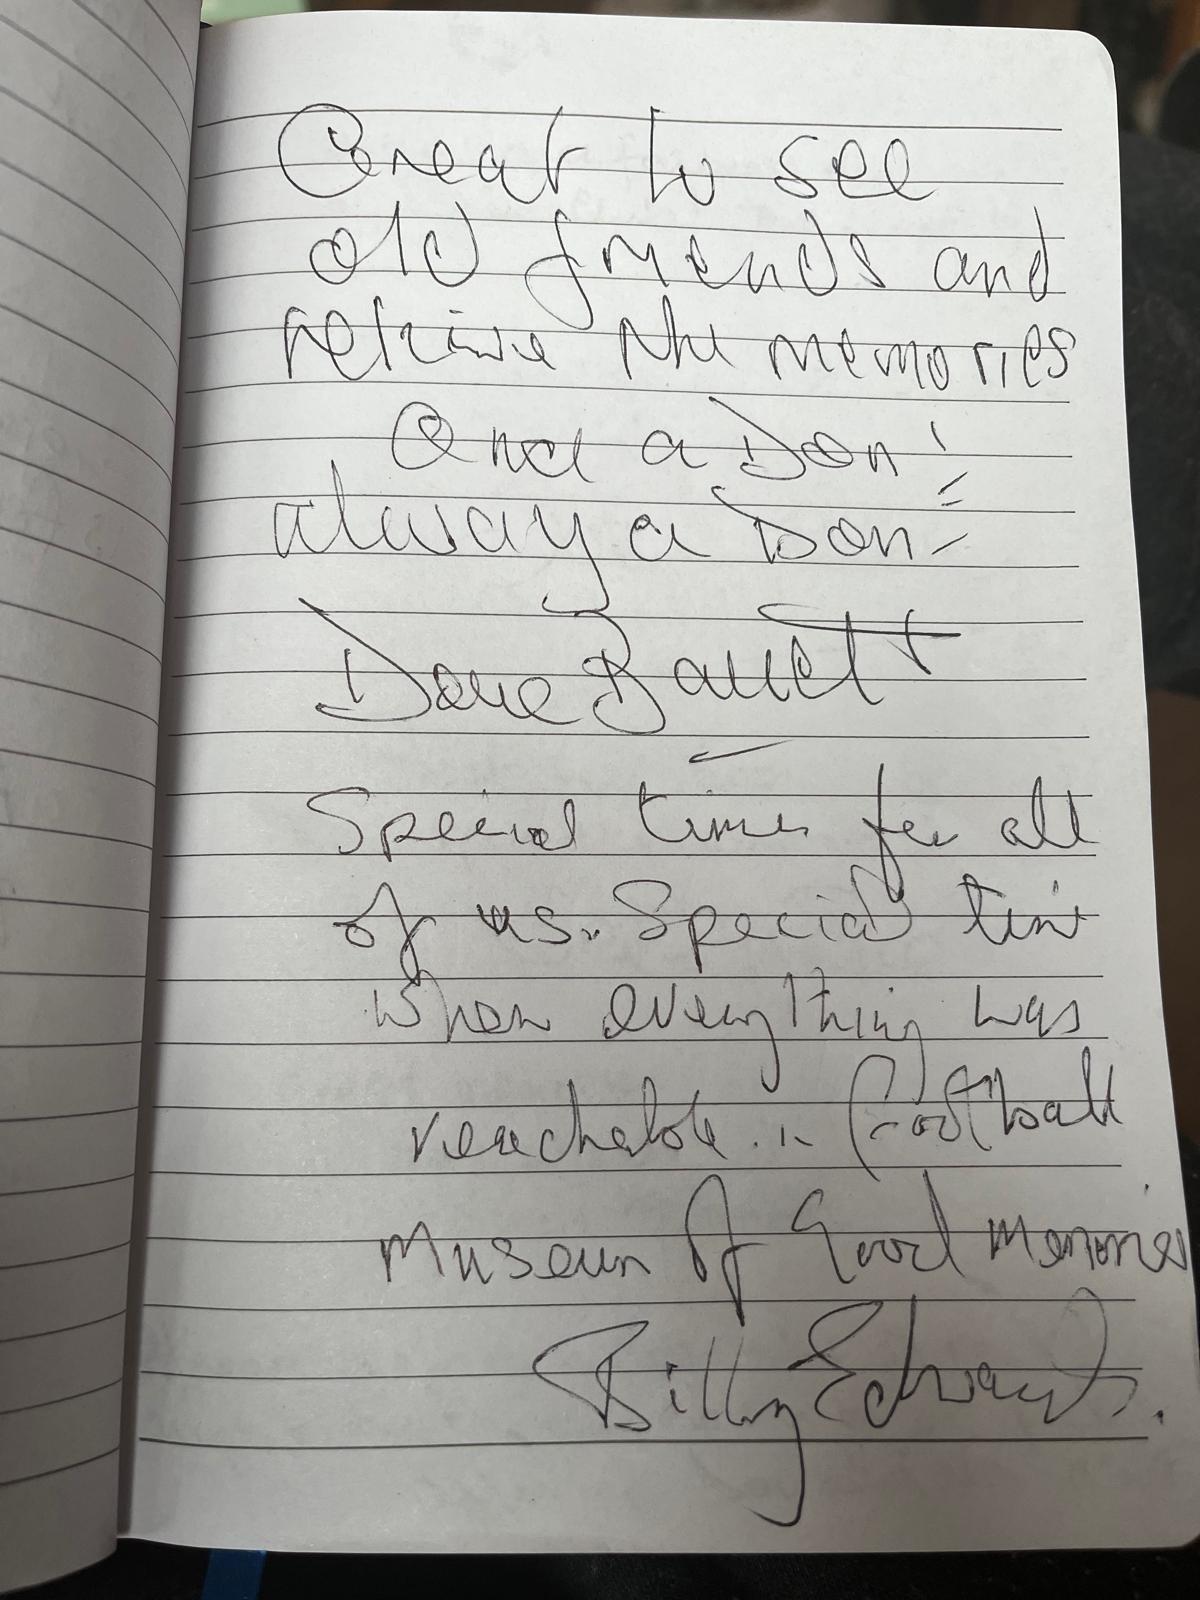 Great to see
old friends and
relive the memories
Once a Don!
always a Don!
Dave Barrett
Special times for all
of us. Special time
when everything was
reachable in football
Museum of Good Memories
Billy Edwards.